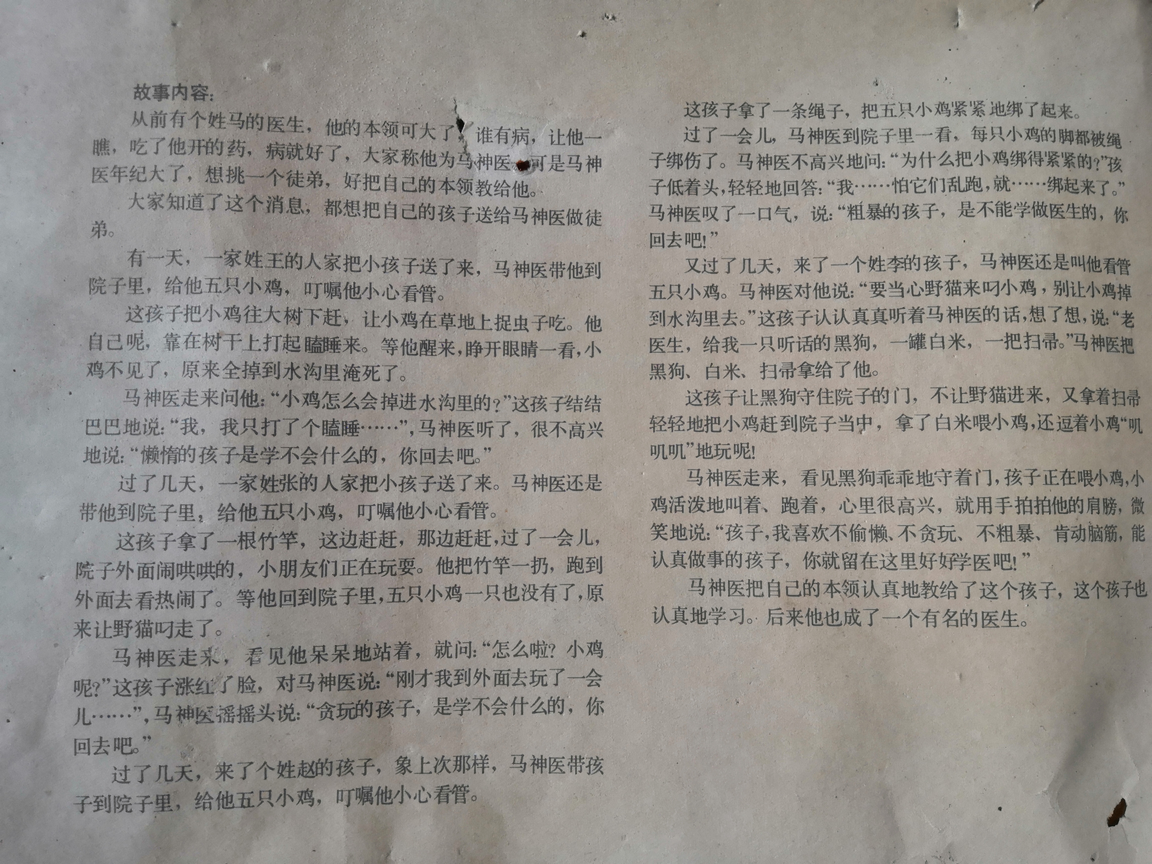 故事内容：
从前有个姓马的医生，他的本领可大了，谁有病，让他一
瞧，吃了他开的药，病就好了，大家称他为马神医。可是马神
医年纪大了，想挑一个徒弟，好把自己的本领教给他。
大家知道了这个消息，都想把自己的孩子送给马神医做徒
弟。
有一天，一家姓王的人家把小孩子送了来，马神医带他到
院子里，给他五只小鸡，叮嘱他小心看管。
这孩子把小鸡往大树下赶，让小鸡在草地上捉虫子吃。他
自己呢，靠在树干上打起瞌睡来。等他醒来，睁开眼睛一看，小
鸡不见了，原来全掉到水沟里淹死了。
马神医走来问他：“小鸡怎么会掉进水沟里的？”这孩子结结
巴巴地说：“我，我只打了个瞌睡……”，马神医听了，很不高兴
地说：“懒惰的孩子是学不会什么的，你回去吧。”
过了几天，一家姓张的人家把小孩子送了来。马神医还是
带他到院子里，给他五只小鸡，叮嘱他小心看管。
这孩子拿了一根竹竿，这边赶赶，那边赶赶，过了一会儿，
院子外面闹哄哄的，小朋友们正在玩耍。他把竹竿一扔，跑到
外面去看热闹了。等他回到院子里，五只小鸡一只也没有了，原
来让野猫叼走了。
马神医走来，看见他呆呆地站着，就问：“怎么啦？小鸡
呢？”这孩子涨红了脸，对马神医说：“刚才我到外面去玩了一会
儿……”，马神医摇摇头说：“贪玩的孩子，是学不会什么的，你
回去吧。”
过了几天，来了个姓赵的孩子，象上次那样，马神医带孩
子到院子里，给他五只小鸡，叮嘱他小心看管。
这孩子拿了一条绳子，把五只小鸡紧紧地绑了起来。
过了一会儿，马神医到院子里一看，每只小鸡的脚都被绳
子绑伤了。马神医不高兴地问：“为什么把小鸡绑得紧紧的？”孩
子低着头，轻轻地回答：“我……怕它们乱跑，就……绑起来了。”
马神医叹了一口气，说：“粗暴的孩子，是不能学做医生的，你
回去吧！”
又过了几天，来了一个姓李的孩子，马神医还是叫他看管
五只小鸡。马神医对他说：“要当心野猫来叼小鸡，别让小鸡掉
到水沟里去。”这孩子认认真真听着马神医的话，想了想，说：“老
医生，给我一只听话的黑狗，一罐白米，一把扫帚。”马神医把
黑狗、白米、扫帚拿给了他。
这孩子让黑狗守住院子的门，不让野猫进来，又拿着扫帚
轻轻地把小鸡赶到院子当中，拿了白米喂小鸡，还逗着小鸡“叽
叽叽”地玩呢！
马神医走来，看见黑狗乖乖地守着门，孩子正在喂小鸡，小
鸡活泼地叫着、跑着，心里很高兴，就用手拍拍他的肩膀，微
笑地说：“孩子，我喜欢不偷懒、不贪玩、不粗暴、肯动脑筋，能
认真做事的孩子，你就留在这里好好学医吧！”
马神医把自己的本领认真地教给了这个孩子，这个孩子也
认真地学习。后来他也成了一个有名的医生。